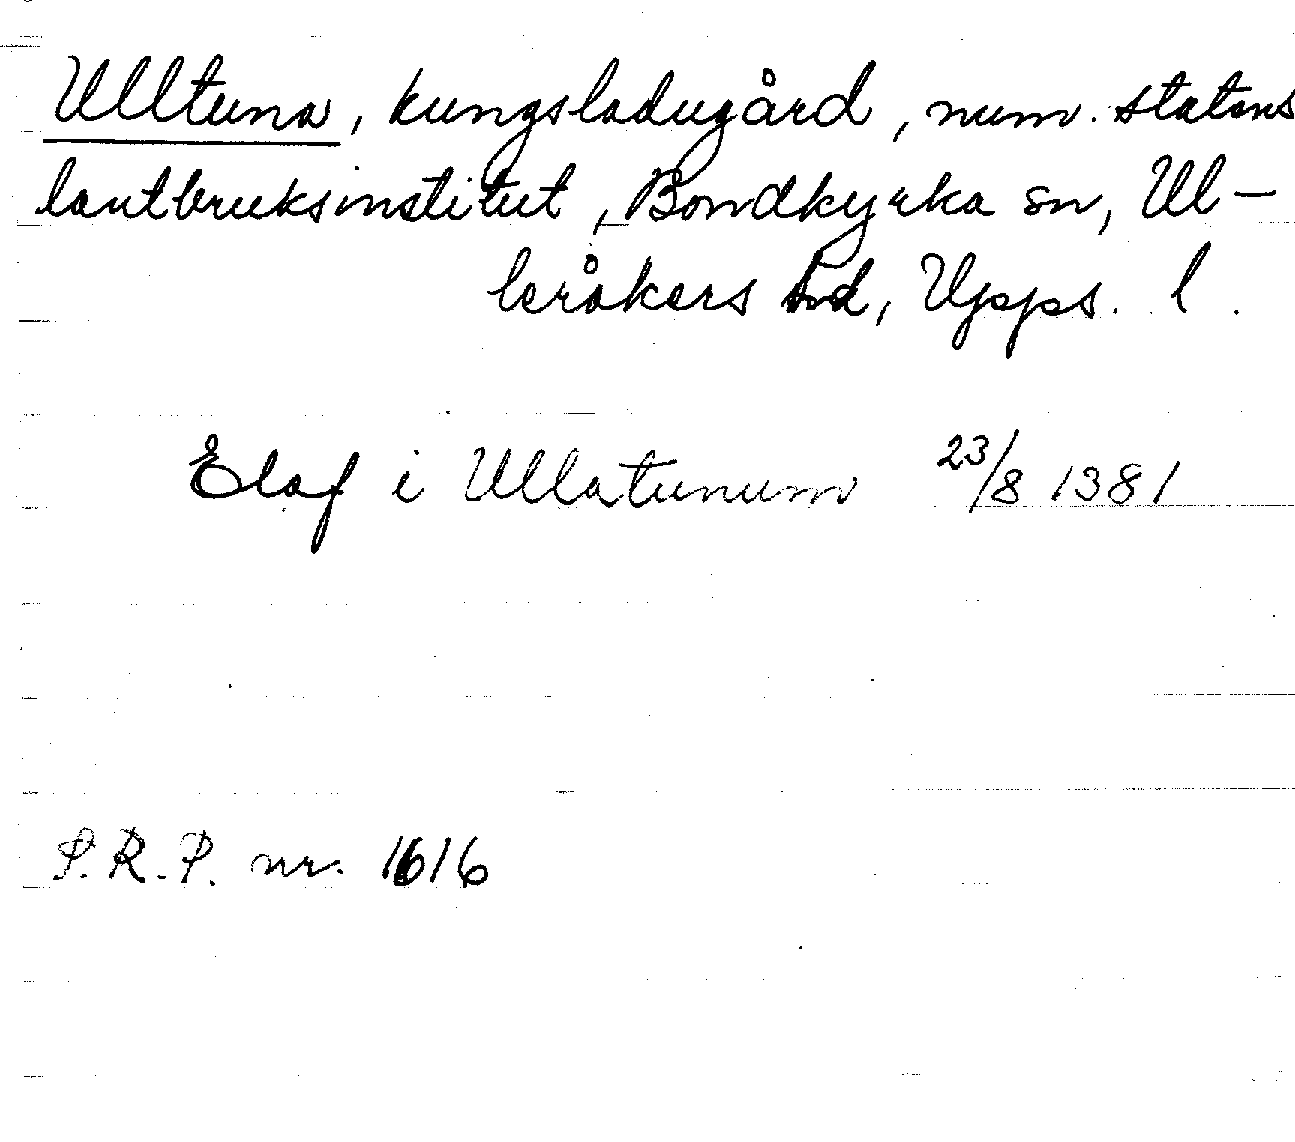 Ulltuna, kungsladugård, num. statens
lantbruksinstitut, Bondkyrka sn, Ul-
leråkers hd, Upps. l.
Elaf i Ullatunum 23/8 1381
S.R.P. nr. 1616